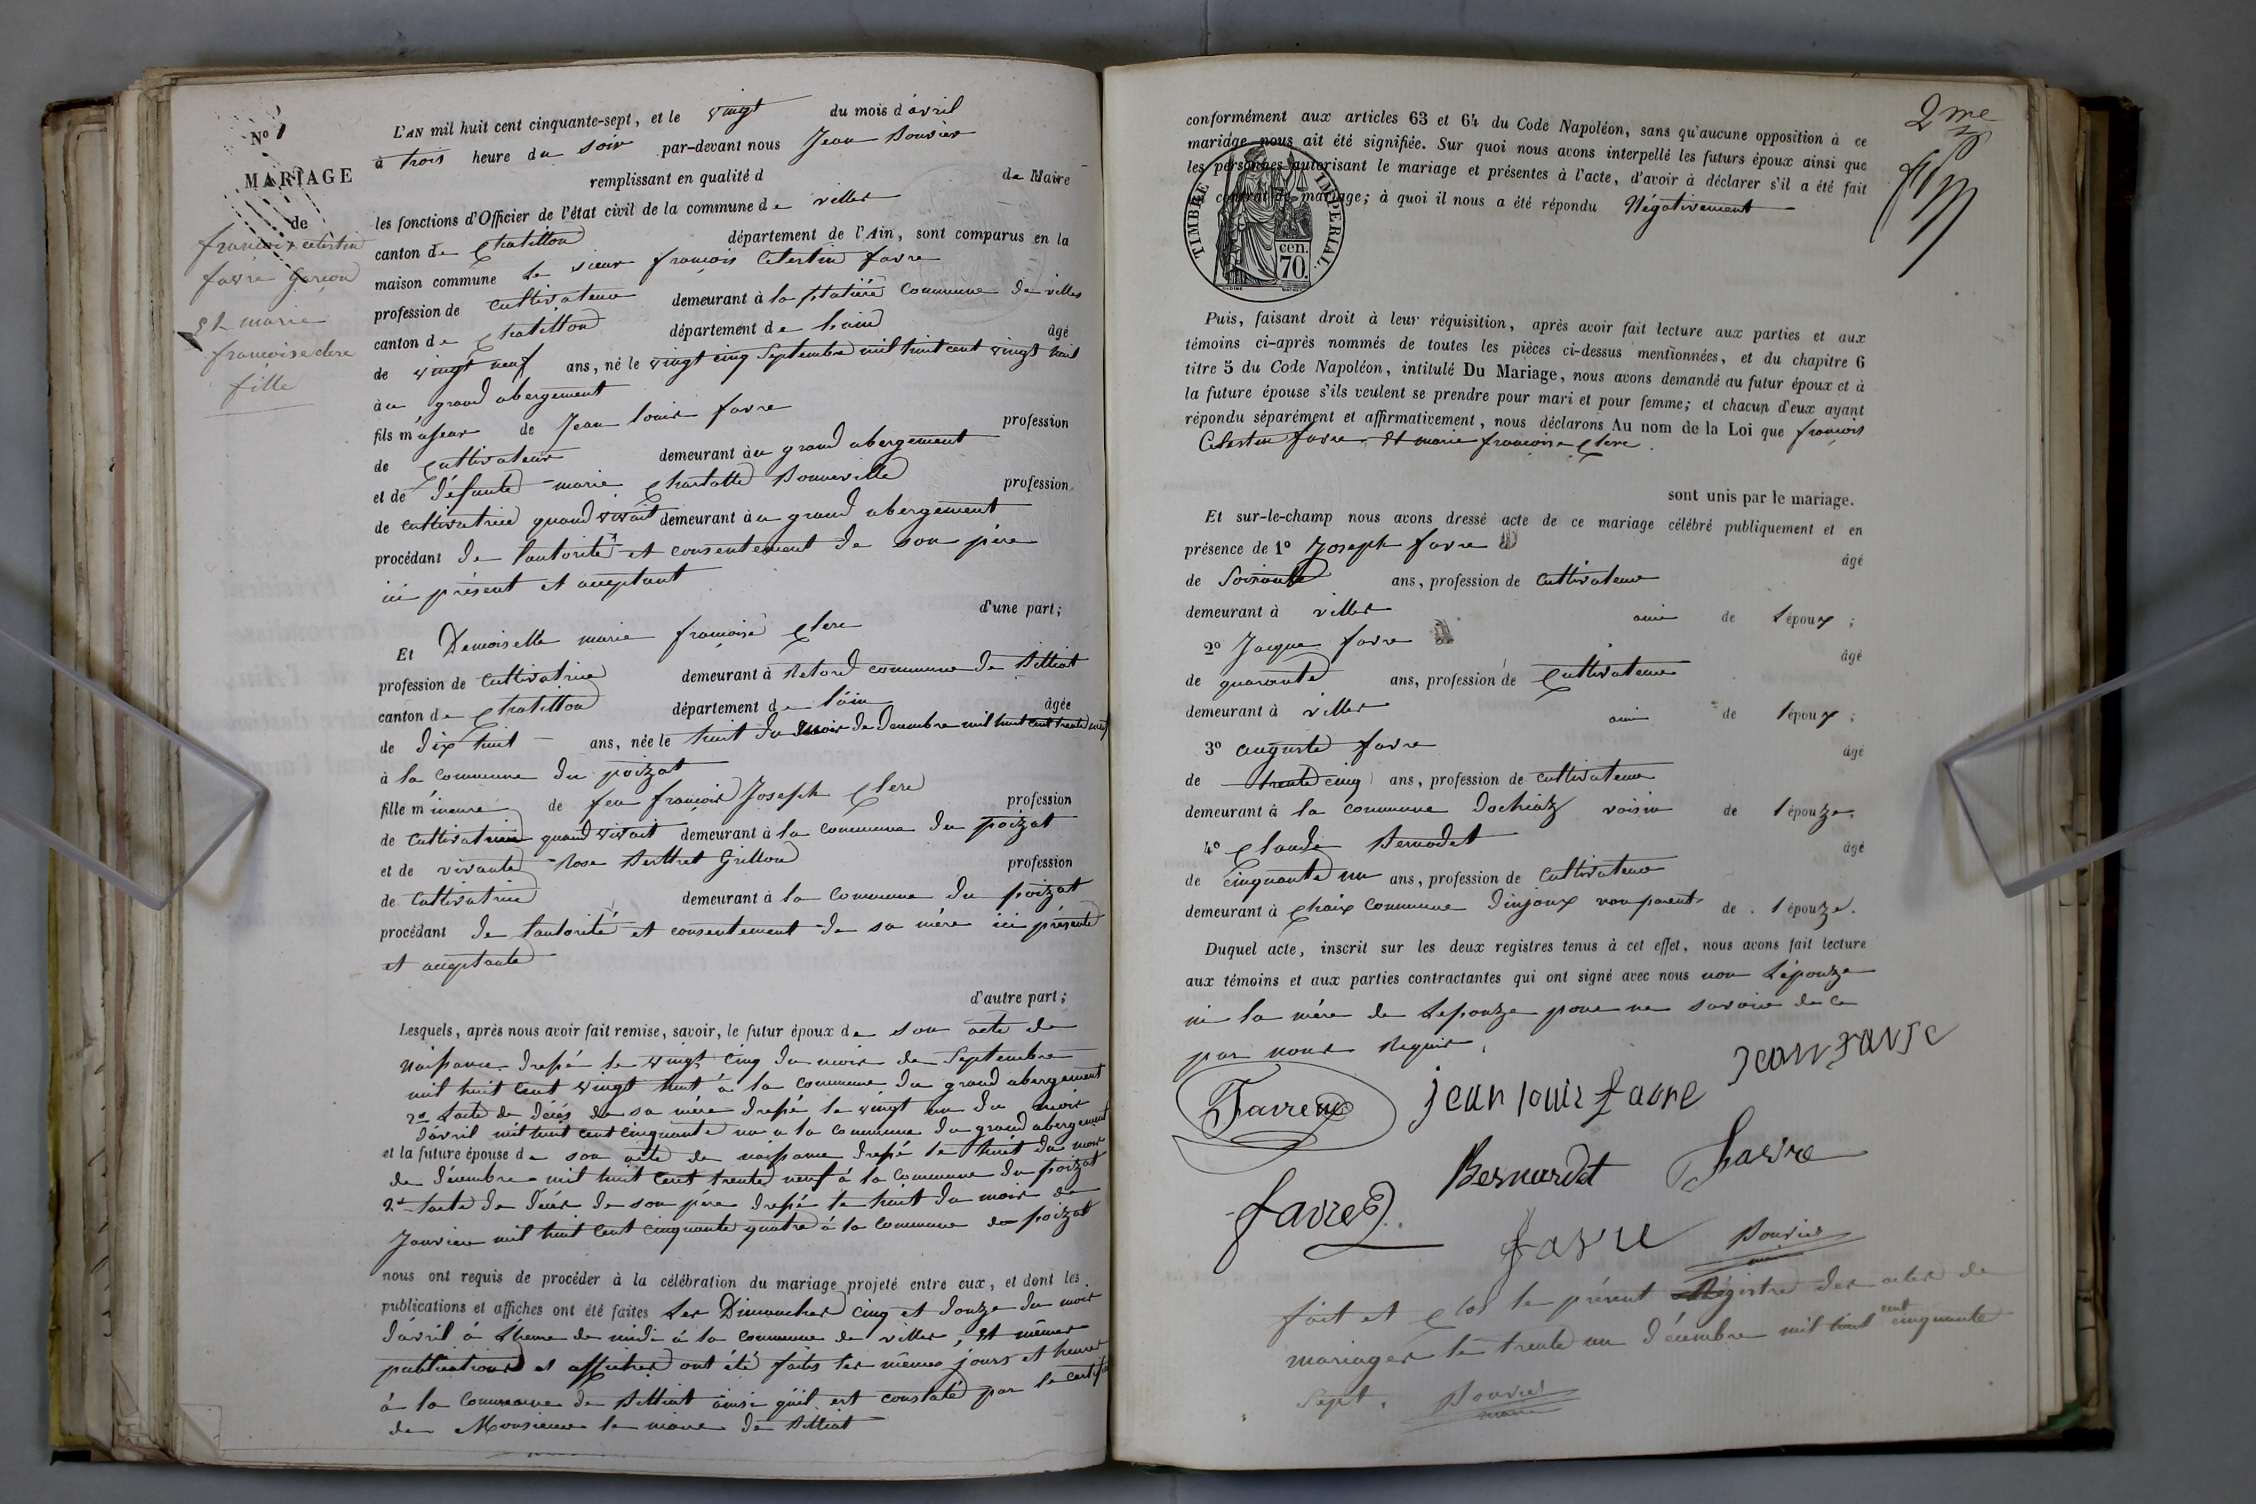 No 1
MARIAGE
de
francois celestin
favre garcon
et marie
francoise clerc
fille
L'AN mil huit cent cinquante-sept, et le vingt du mois d'avril
à trois heure du soir par-devant nous Jean Bouvier
remplissant en qualité d de Maire
les fonctions d'Officier de l'état civil de la commune de villes
canton de Chatillon département de l'Ain, sont comparus en la
maison commune le sieur françois Celestin favre
profession de cultivateur demeurant à la platière commune de villes
canton de Chatillon département de l'ain âgé
de vingt neuf ans, né le vingt cinq Septembre mil huit cent vingt huit
au grand abergement
fils majeur de Jean louis favre profession
de Cultivateur demeurant au grand abergement
et de défunte marie Charlotte Bonneville profession
de cultivatrice quand vivait demeurant au grand abergement
procédant de l'autorité et consentement de son père
ici présent et acceptant
d'une part;
Et Demoiselle marie françoise Clerc
profession de Cultivatrice demeurant à Retord commune de Billiat
canton de Chatillon département de l'ain âgée
de dix huit ans, née le huit du mois de Decembre mil huit cent trente neuf
à la commune du poizat
fille mineure de feu françois Joseph Clerc profession
de Cultivateur quand vivait demeurant à la commune du poizat
et de vivante Rose Berthet Grillon profession
de Cultivatrice demeurant à la Commune du poizat
procédant de l'autorité et consentement de sa mère ici présente
et acceptante
d'autre part;
Lesquels, après nous avoir fait remise, savoir, le futur époux de son acte de
naissance dressé le vingt cinq du mois de Septembre
mil huit cent vingt huit à la commune du grand abergement
2° l'acte de décés de sa mère dressé le vingt un du mois
d'avril mil huit cent cinquante un a la commune du grand abergement
et la future épouse de son acte de naissance dressé le huit du mois
de décembre mil huit cent trente neuf à la commune du poizat
2° l'acte de décés de son père dressé le huit du mois de
Janvier mil huit cent cinquante quatre à la commune du poizat
nous ont requis de procéder à la célébration du mariage projeté entre eux, et dont les
publications et affiches ont été faites les Dimanches cinq et douze du mois
d'avril à l'heure de midi à la commune de villes, et mêmes
publications et affiches ont été faites les mêmes jours et heures
à la Commune de Billiat ainsi qu'il est constaté par le certificat
de Monsieur le maire de Billiat
2me
conformément aux articles 63 et 64 du Code Napoléon, sans qu'aucune opposition à ce
mariage nous ait été signifiée. Sur quoi nous avons interpellé les futurs époux ainsi que
les personnes autorisant le mariage et présentes à l'acte, d'avoir à déclarer s'il a été fait
contrat de mariage; à quoi il nous a été répondu Négativement
TIMBRE IMPERIAL
70 cen.
Puis, faisant droit à leur réquisition, après avoir fait lecture aux parties et aux
témoins ci-après nommés de toutes les pièces ci-dessus mentionnées, et du chapitre 6
titre 5 du Code Napoléon, intitulé Du Mariage, nous avons demandé au futur époux et à
la future épouse s'ils veulent se prendre pour mari et pour femme; et chacun d'eux ayant
répondu séparément et affirmativement, nous déclarons Au nom de la Loi que françois
Celestin favre et marie francoise Clerc.
sont unis par le mariage.
Et sur-le-champ nous avons dressé acte de ce mariage célébré publiquement et en
présence de 1° Joseph favre âgé
de Soixante ans, profession de Cultivateur
demeurant à villes ami de l'époux;
2° Jacque favre âgé
de quarante ans, profession de Cultivateur
demeurant à villes ami de l'époux;
3° auguste favre âgé
de trente cinq ans, profession de cultivateur
demeurant à la commune dochiaz voisin de l'épouze.
4° Claude Bernodet âgé
de Cinquante un ans, profession de Cultivateur
demeurant à Chaix Commune d'injoux non parent de l'épouze.
Duquel acte, inscrit sur les deux registres tenus à cet effet, nous avons fait lecture
aux témoins et aux parties contractantes qui ont signé avec nous non l'épouze
ni la mère de lepouze pour ne savoir de ce
par nous Requis.
Favre
jean louis favre
Jean favre
Bernardet
favre
favre
favre
Bouvier
maire
fait et Clos le présent Régistre des actes de
mariages le trente un décembre mil huit cent cinquante
Sept. Bouvier
maire